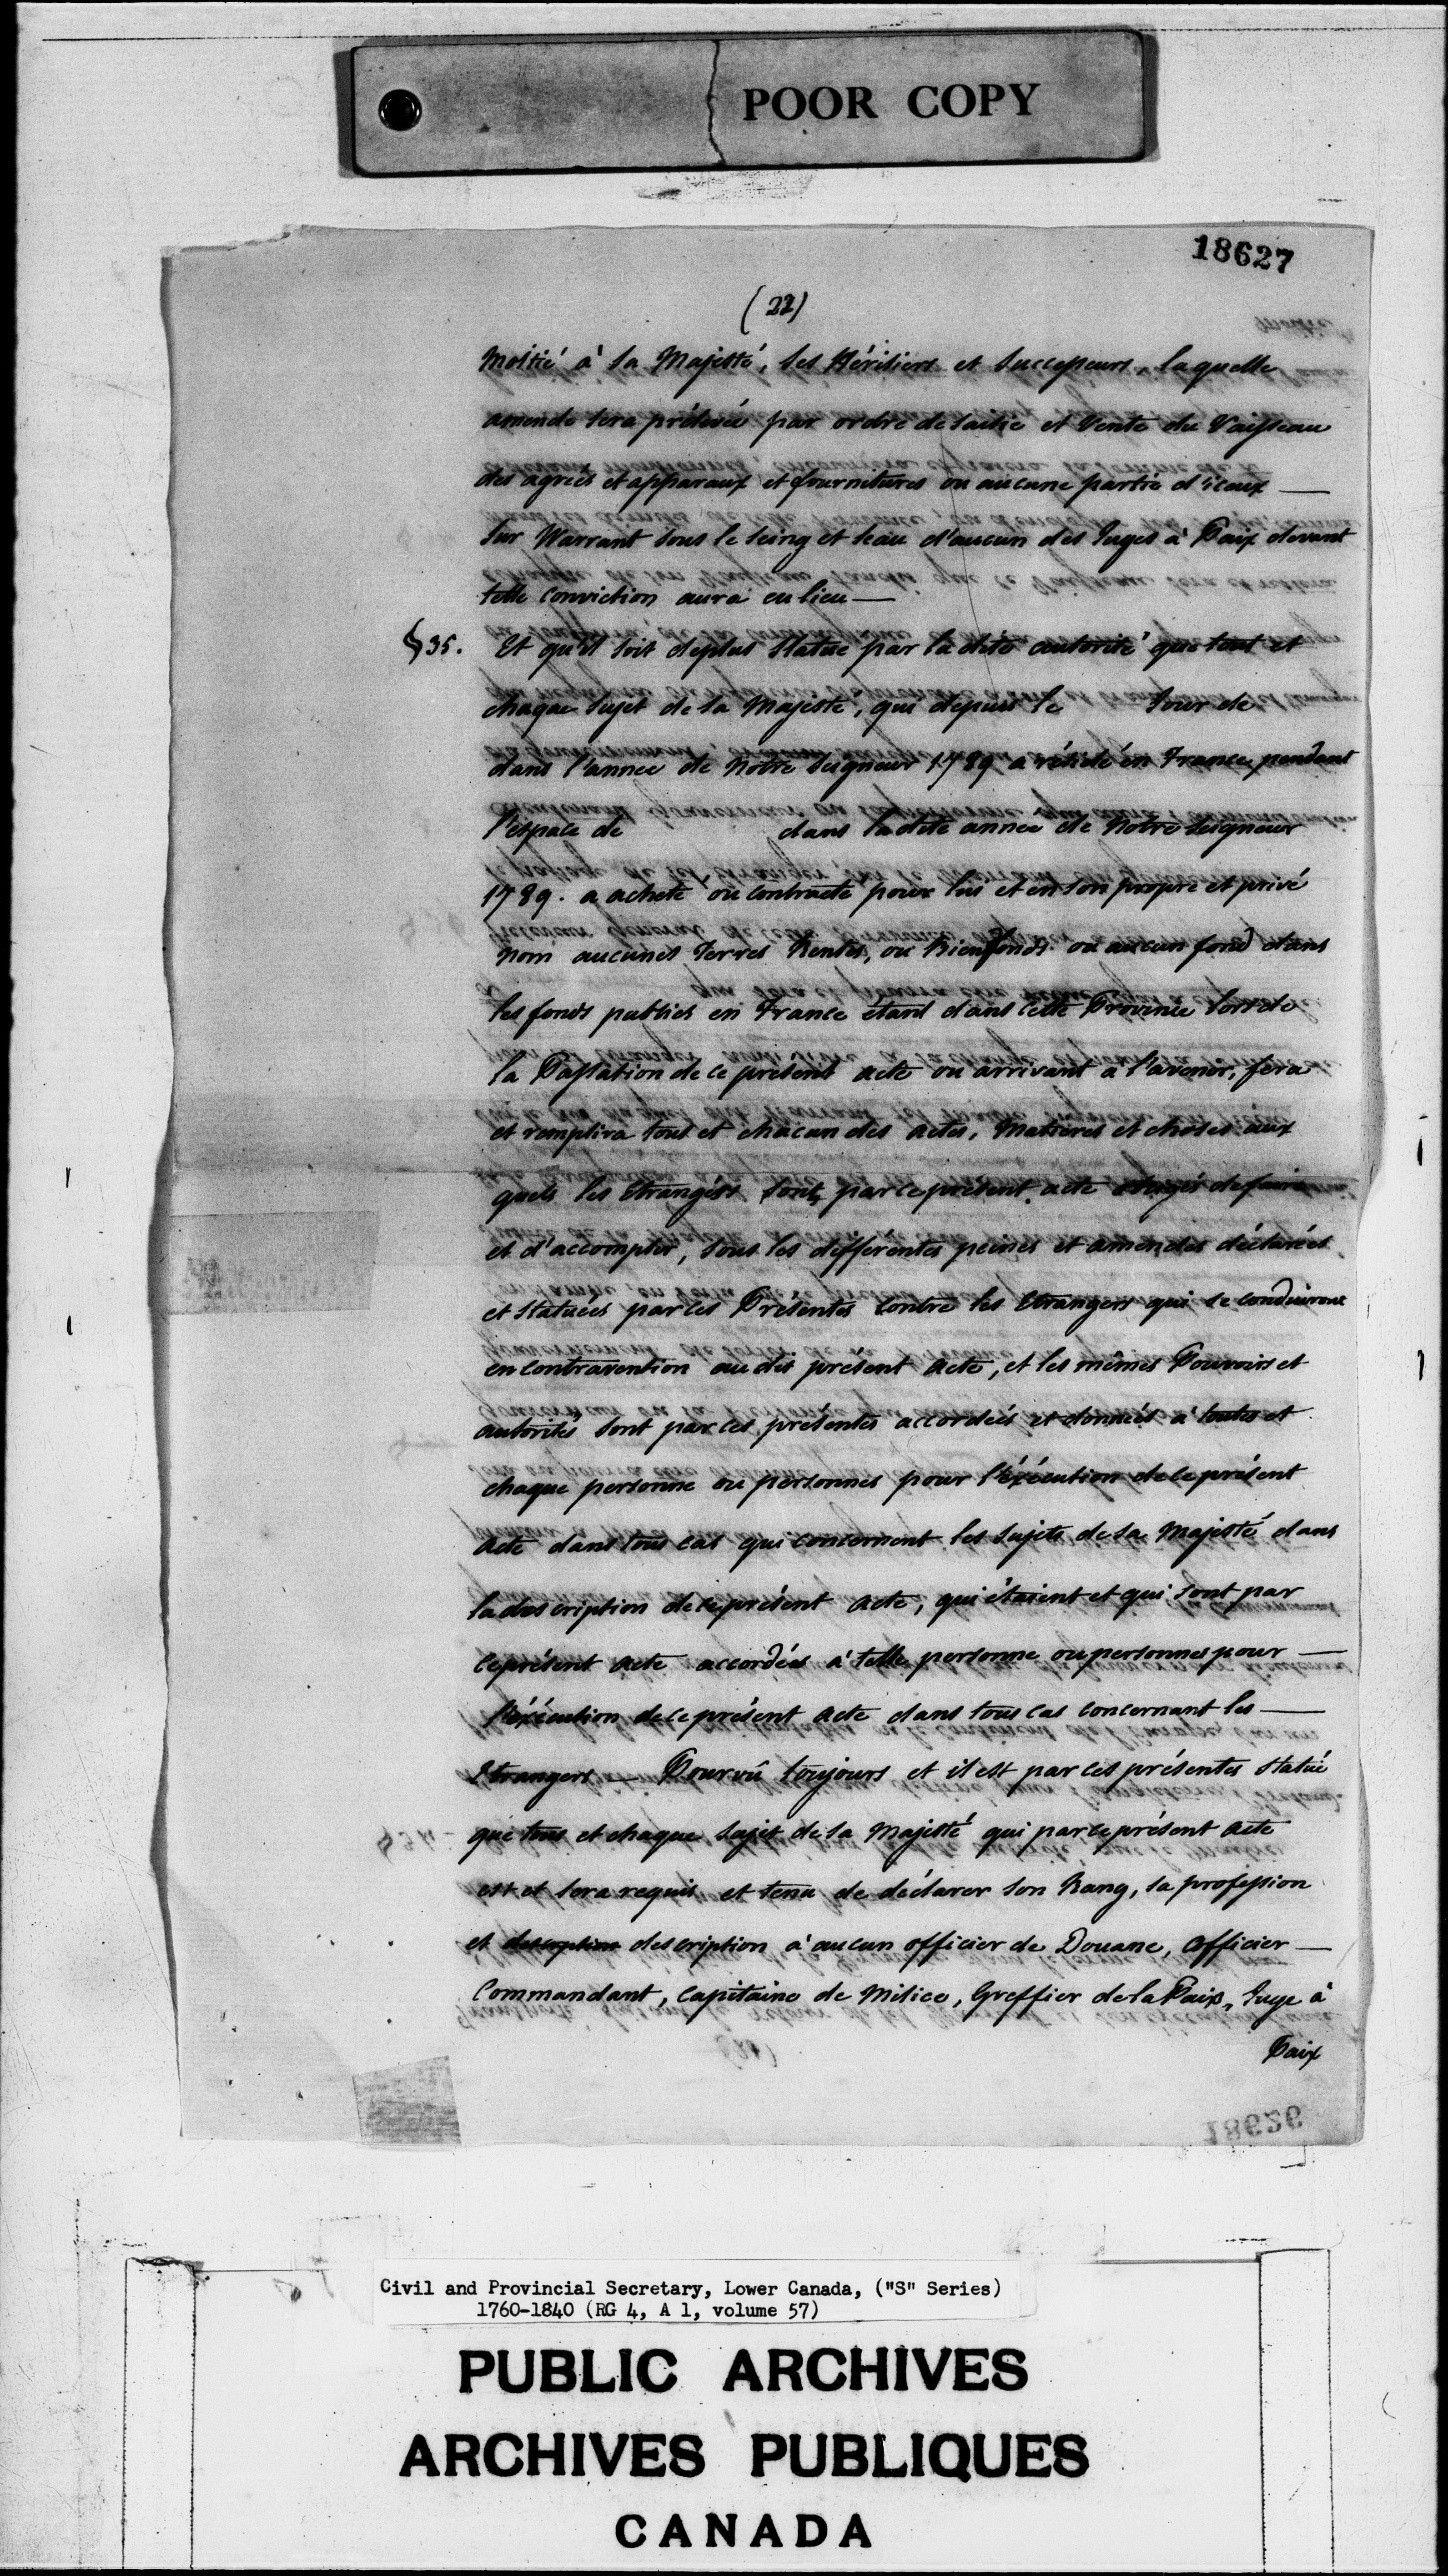 POOR COPY
18627
(22)
Moitié à Sa Majesté, Ses Héritiers et Successeurs, laquelle
amende sera prélevée par ordre de saisie et Vente du Vaisseau
des agrees et apparaux et fournitures ou aucune partie d'iceux —
Sur Warrant sous le Seing et Seau d'aucun des Juges à Paix devant
telle conviction aura eu lieu —
§ 35. Et qu'il soit deplus Statué par la dite autorité que tout et
chaque Sujet de Sa Majesté, qui depuis le Jour de
dans l'année de Notre Seigneur 1789 a résidé en France pendant
l'espace de dans la dite année de Notre Seigneur
1789. a acheté ou contracté pour lui et en son propre et privé
nom aucunes Terres Rentes, ou Bienfonds ou aucun fond dans
les fonds publics en France étant dans cette Province lors de
la Passation de ce présent Acte ou arrivant à l'avenir, fera
et remplira tout et chacun des actes, Matières et choses aux
quels les Etrangers sont, par ce présent acte obligés de faire
et d'accomplir, sous les differentes peines et amendes déclarées
et Statuées par ces Présentes contre les Etrangers qui se conduiront
en contravention au dit présent Acte, et les mêmes Pouvoirs et
autorités sont par ces présentes accordées et données à toutes et
chaque personne ou personnes pour l'éxécution de ce présent
Acte dans tous cas qui concernent les Sujets de Sa Majesté dans
la description de ce présent Acte, qui étaient et qui sont par
ce présent Acte accordées à telle personne ou personnes pour —
l'éxécution de ce présent Acte dans tous cas concernant les —
Etrangers — Pourvû toujours et il est par ces présentes Statué
que tous et chaque Sujet de Sa Majesté qui par ce présent Acte
est et sera requis et tenu de déclarer son Rang, sa profession
et description description à aucun officier de Douane, Officier —
Commandant, Capitaine de Milice, Greffier de la Paix, Juge à
Paix
18626
Civil and Provincial Secretary, Lower Canada, ("S" Series)
1760-1840 (RG 4, A 1, volume 57)
PUBLIC ARCHIVES
ARCHIVES PUBLIQUES
CANADA